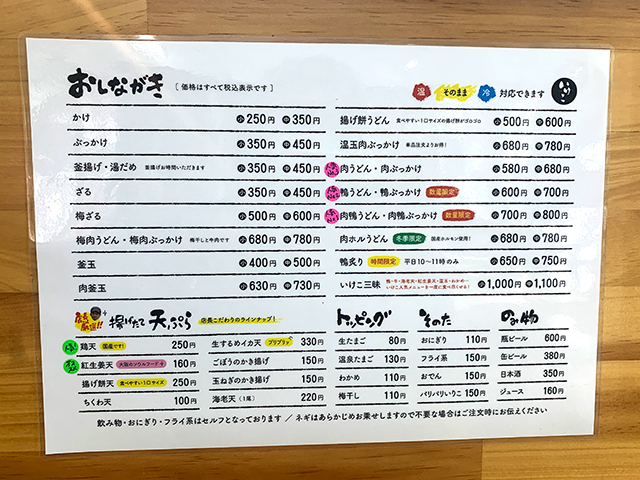 おしながき [ 価格はすべて税込表示です ]
温 そのまま 冷 対応できます
かけ 小250円 中350円
ぶっかけ 小350円 中450円
釜揚げ・湯だめ 釜揚げお時間いただきます 小350円 中450円
ざる 小350円 中450円
梅ざる 小500円 中600円
梅肉うどん・梅肉ぶっかけ 梅干しと牛肉です 小680円 中780円
釜玉 小400円 中500円
肉釜玉 小630円 中730円
揚げ餅うどん 食べやすい1口サイズの揚げ餅がゴロゴロ 小500円 中600円
温玉肉ぶっかけ 単品注文よりお得! 小680円 中780円
肉うどん・肉ぶっかけ 小580円 中680円
鴨うどん・鴨ぶっかけ 数量限定 小600円 中700円
肉鴨うどん・肉鴨ぶっかけ 数量限定 小700円 中800円
肉ホルうどん 冬季限定 国産ホルモン使用! 小680円 中780円
鴨炙り 時間限定 平日10〜11時のみ 小650円 中750円
いけこ三昧 鴨・牛・海老天・紅生姜天・温玉・わかめ…
いけこ人気メニューを一度に食べ尽くせる! 小1,000円 中1,100円
店長厳選!! 揚げたて 天ぷら 店長こだわりのラインナップ!
鶏天 国産です! 250円
紅生姜天 大阪のソウルフード 160円
揚げ餅天 食べやすい1口サイズ 250円
ちくわ天 100円
生するめイカ天 プリプリッ 330円
ごぼうのかき揚げ 150円
玉ねぎのかき揚げ 150円
海老天(1尾) 220円
トッピング
生たまご 80円
温泉たまご 130円
わかめ 110円
梅干し 110円
そのた
おにぎり 110円
フライ系 150円
おでん 150円
パリパリいりこ 150円
のみ物
瓶ビール 600円
缶ビール 380円
日本酒 350円
ジュース 160円
飲み物・おにぎり・フライ系はセルフとなっております / ネギはあらかじめお乗せしますので不要な場合はご注文時にお伝えください